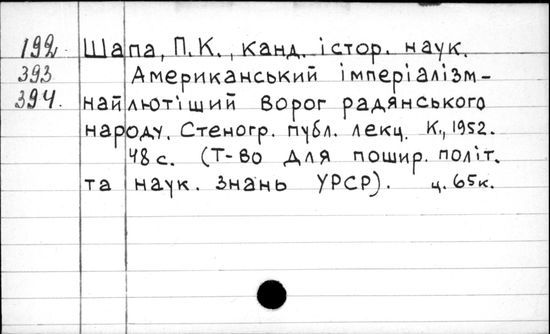 192 Шапа, П.К., канд. істор. наук.
393 Американський імперіалізм-
394. найлютіший ворог радянського
народу. Стеногр. публ. лекц. К., 1952.
48 с. (Т-во для пошир. політ.
та наук. знань УРСР). ц. 65к.